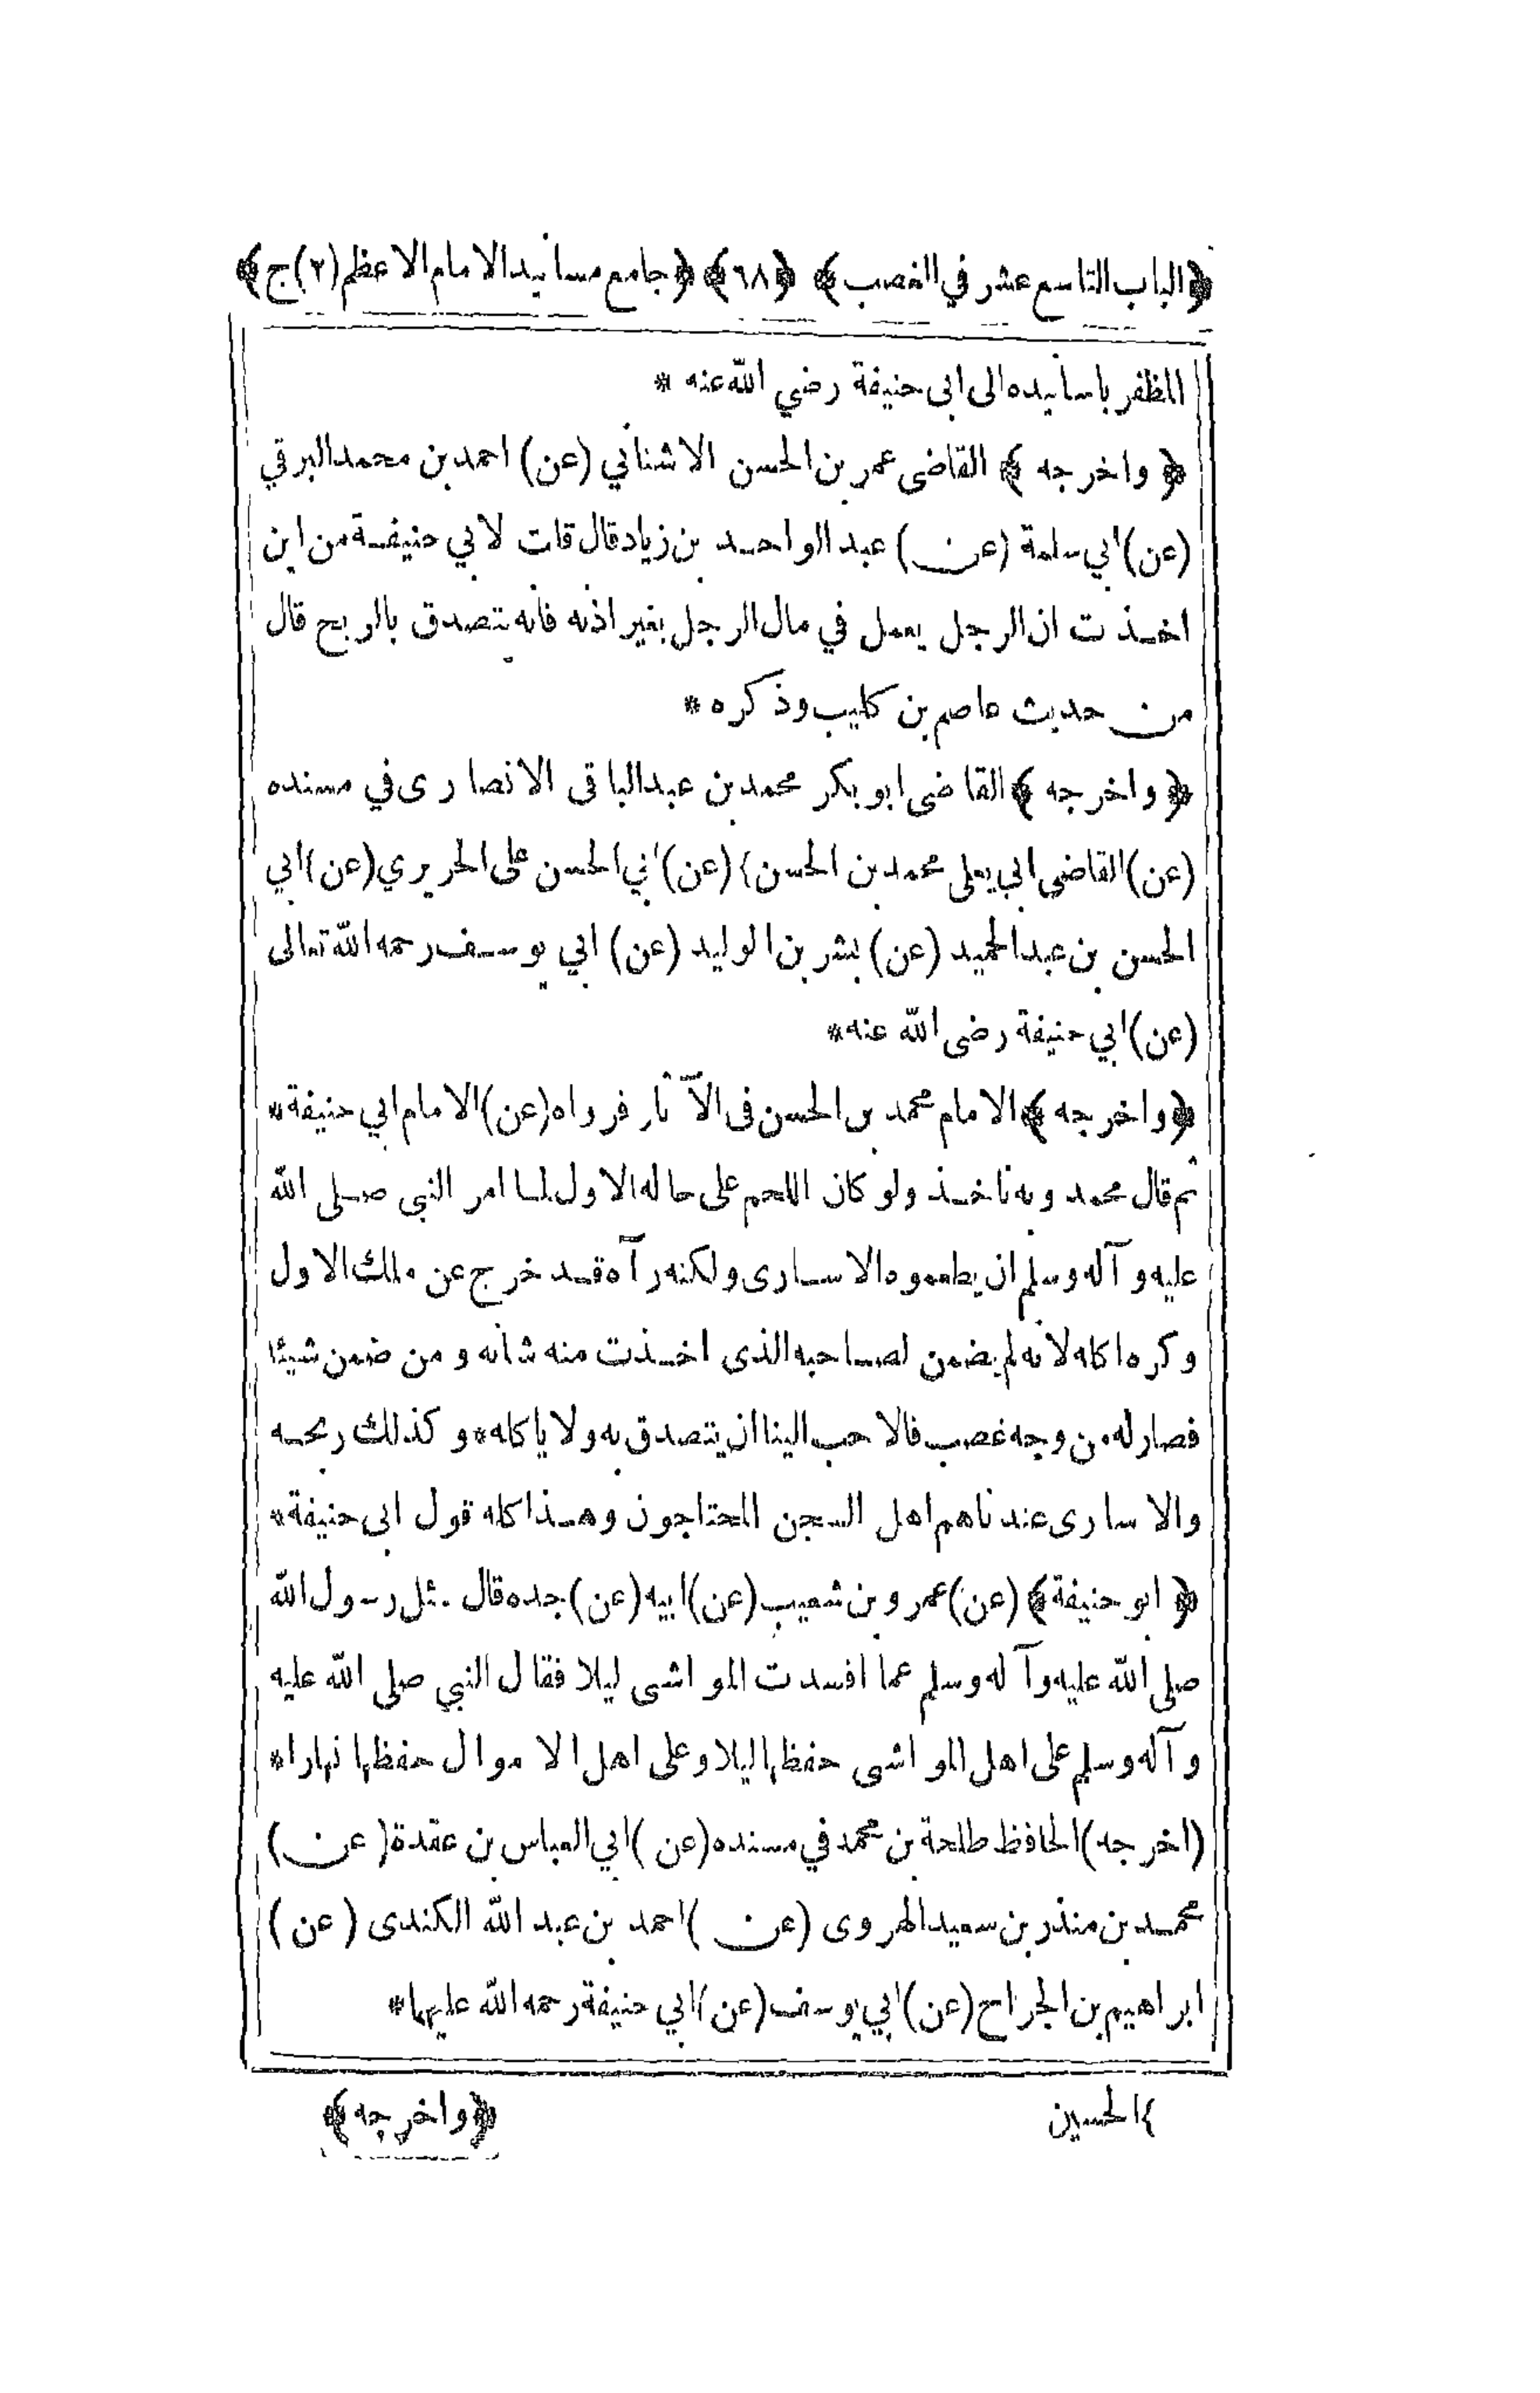 ﴿الباب التاسع عشر في الغصب﴾ ﴿٦٨﴾ ﴿جامع مسانيد الامام الاعظم (٢) ج﴾
المظفر باسانيده الى ابى حنيفة رضي الله عنه *
﴿ واخرجه ﴾ القاضى عمر بن الحسن الاشناني (عن) احمد بن محمد البرقي
(عن) ابي سلمة (عن) عبد الواحد بن زياد قال قلت لابي حنيفة من اين
اخذت ان الرجل يعمل في مال الرجل بغير اذنه فانه يتصدق بالربح قال
من حديث عاصم بن كليب وذكره *
﴿ واخرجه ﴾ القاضى ابو بكر محمد بن عبد الباقى الانصارى في مسنده
(عن) القاضى ابي يعلى محمد بن الحسن} (عن) ابي الحسن على الحريري (عن) ابي
الحسن بن عبد الحميد (عن) بشر بن الوليد (عن) ابي يوسف رحمه الله تعالى
(عن) ابي حنيفة رضى الله عنه*
﴿ واخرجه ﴾ الامام محمد بن الحسن فى الآثار فرواه (عن) الامام ابي حنيفة*
ثم قال محمد وبه ناخذ ولو كان اللحم على حاله الاول لما امر النبى صلى الله
عليه وآله وسلم ان يطعموه الاسارى ولكنه رآه قد خرج عن ملك الاول
وكره اكله لانه لم يضمن لصاحبه الذى اخذت منه شاته ومن ضمن شيئا
فصار له من وجه غصب فالاحب الينا ان يتصدق به ولا ياكله* وكذلك ربحه
والاسارى عندنا هم اهل السجن المحتاجون وهذا كله قول ابى حنيفة*
﴿ ابو حنيفة﴾ (عن) عمرو بن شعيب (عن) ابيه (عن) جده قال سئل رسول الله
صلى الله عليه وآله وسلم عما افسدت المواشى ليلا فقال النبي صلى الله عليه
وآله وسلم على اهل المواشى حفظها ليلا وعلى اهل الاموال حفظها نهارا*
(اخرجه) الحافظ طلحة بن محمد في مسنده (عن) ابي العباس بن عقدة (عن)
محمد بن منذر بن سعيد الهروى (عن) احمد بن عبد الله الكندى (عن)
ابراهيم بن الجراح (عن) ابي يوسف (عن) ابي حنيفة رحمه الله عليهما*
}الحسين
﴿واخرجه﴾